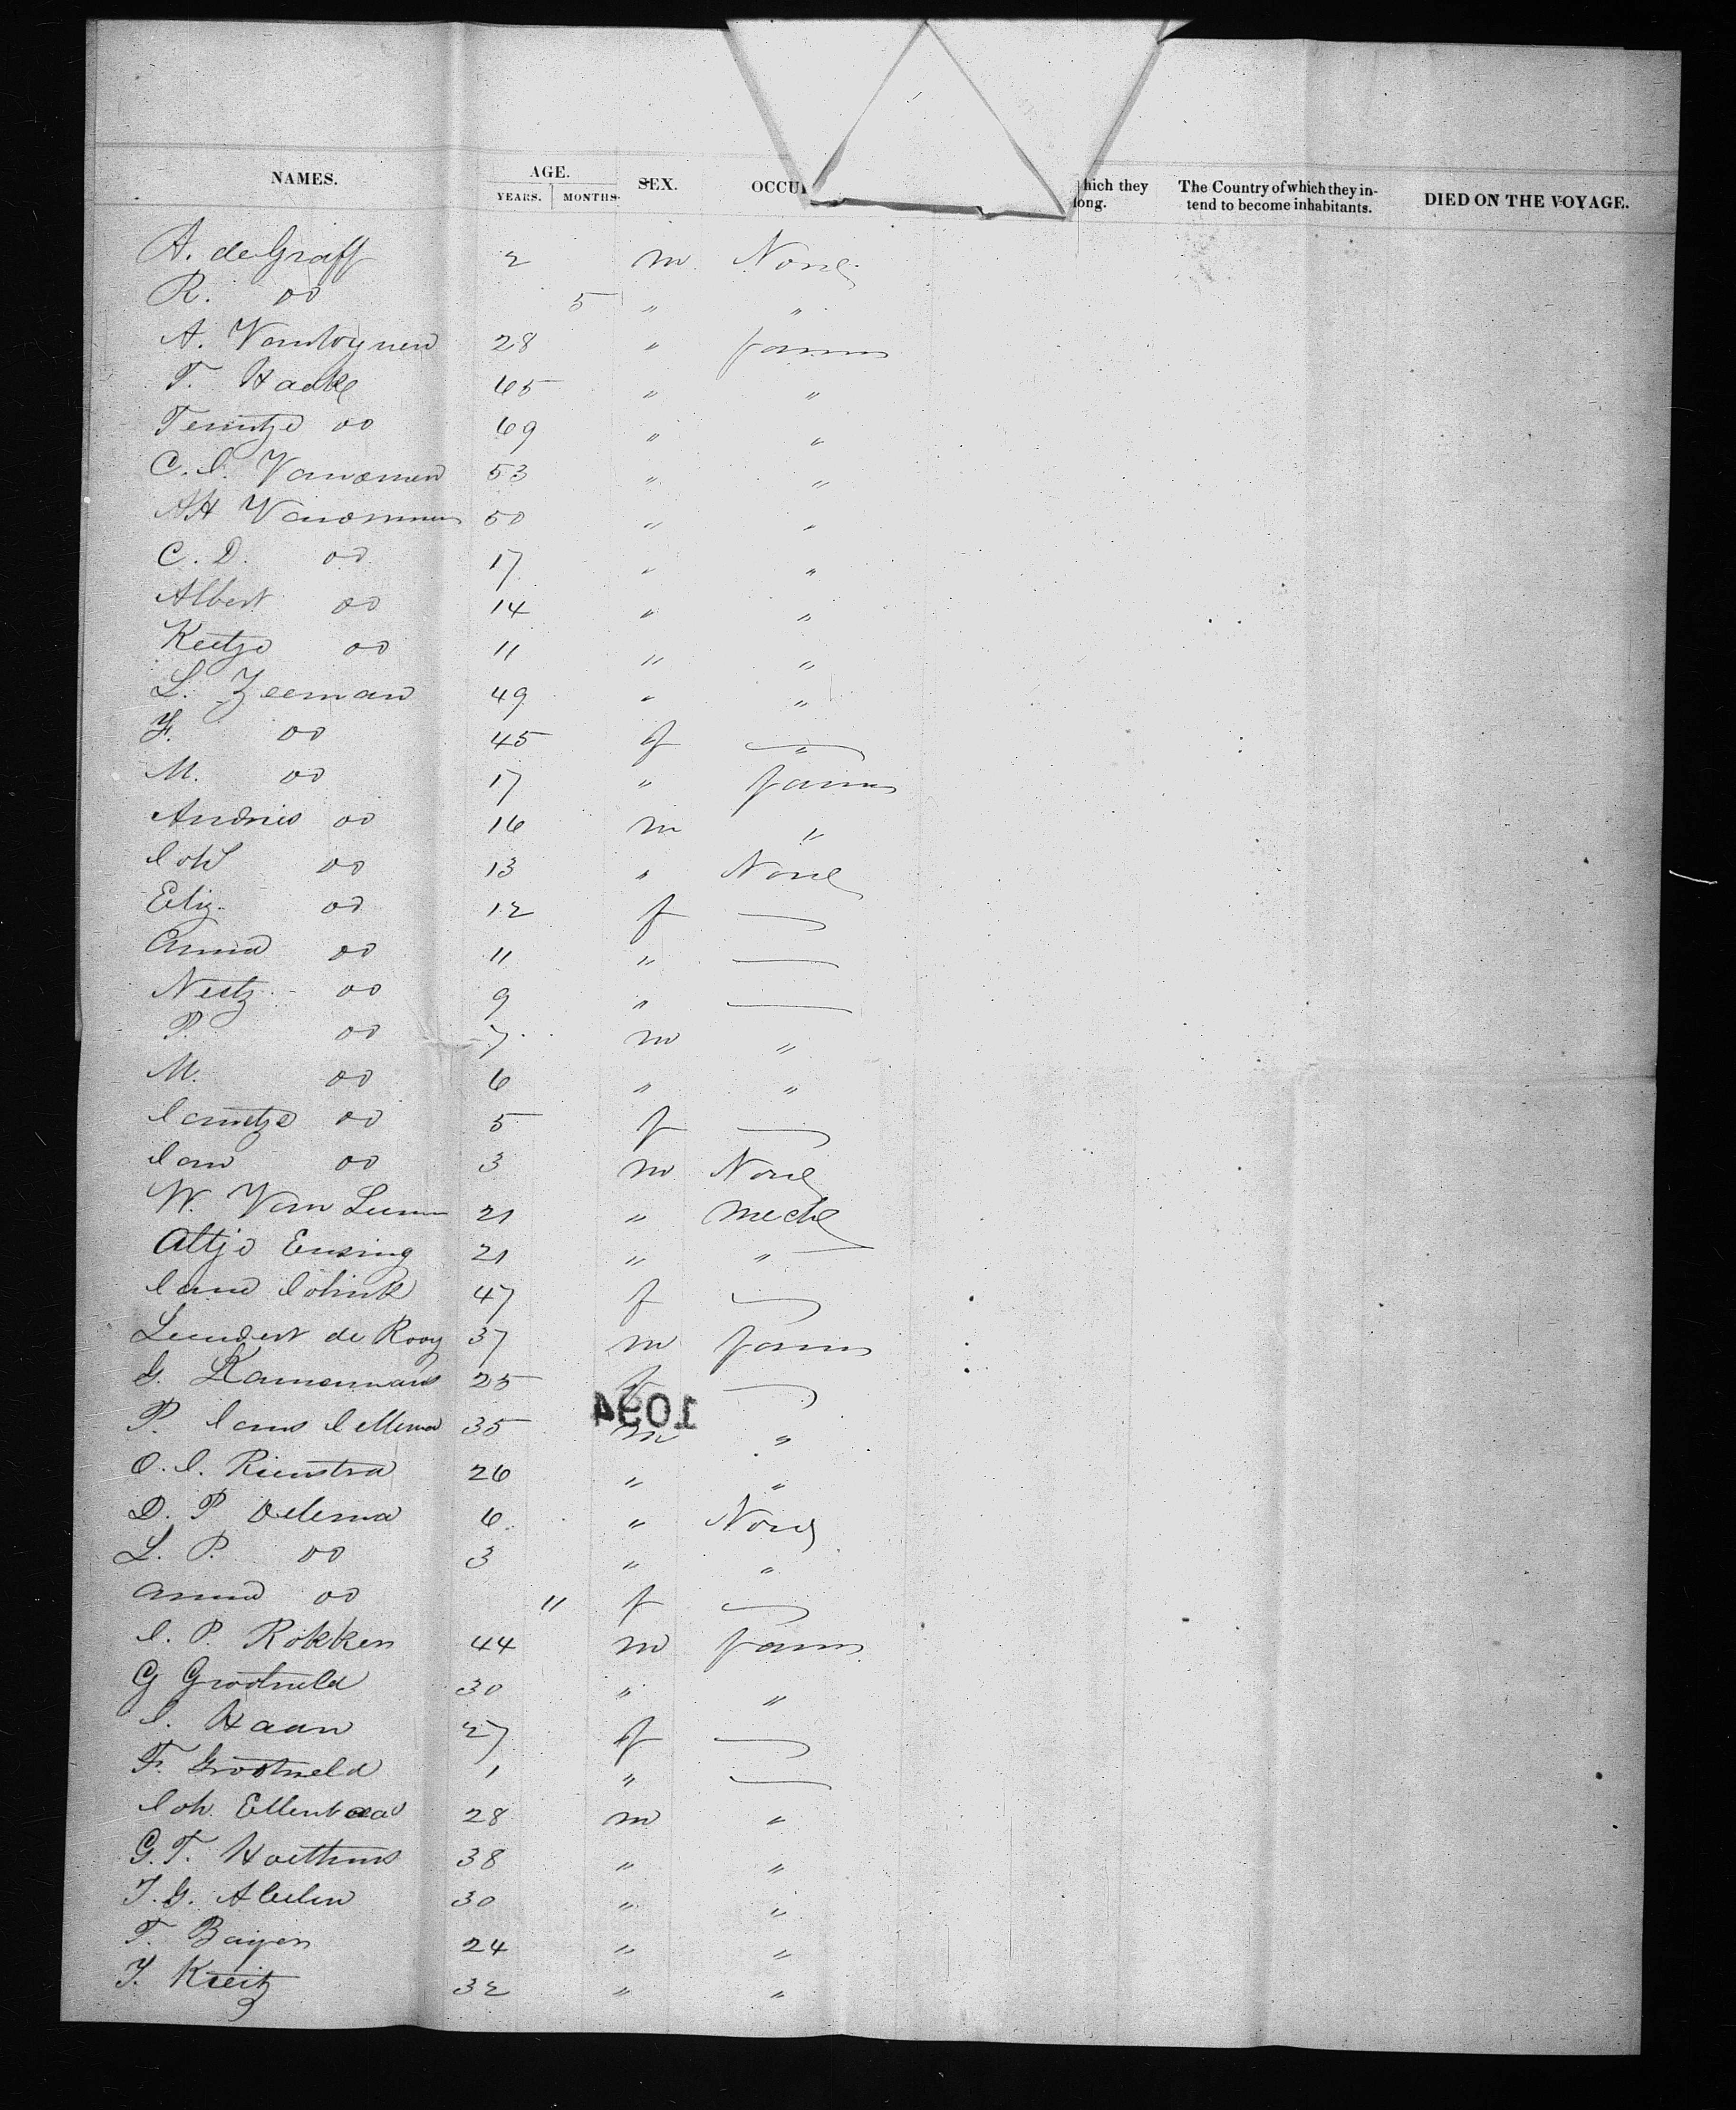 NAMES. AGE. YEARS. MONTHS. SEX. OCCU hich they long. The Country of which they intend to become inhabitants. DIED ON THE VOYAGE.
A. de Graff 2 m None
R. do 5 " "
A. 28 " farmer
T. Haak 65 " "
do 69 " "
C. J. 53 " "
AH 50 " "
C. D. do 17 " "
Albert do 14 " "
Keetje do 11 " "
L. Zeeman 49 " "
do 45 f "
M. do 17 " farmer
Andries do 16 m "
Joh do 13 " None
Eliz. do 12 f —
Anna do 11 " —
Neetz do 9 " —
P. do 7 m "
M. do 6 " "
Jantze do 5 f —
Jan do 3 m None
W. Van 21 " Mech
Altje Ensing 21 " "
47 f —
Leendert de Rooy 37 m farmer
G. 25 f —
1094
P. Jans 35 m "
O. J. Rienstra 26 " "
D. P. 6 " None
L. P. do 3 " "
Anna do 11 f —
J. P. Rokken 44 m farmer
G Grootveld 30 " "
J. Haan 27 f —
F. Grootveld 1 " —
Joh. 28 m "
G. T. 38 " "
30 " "
T. 24 " "
Kreitz 32 " "